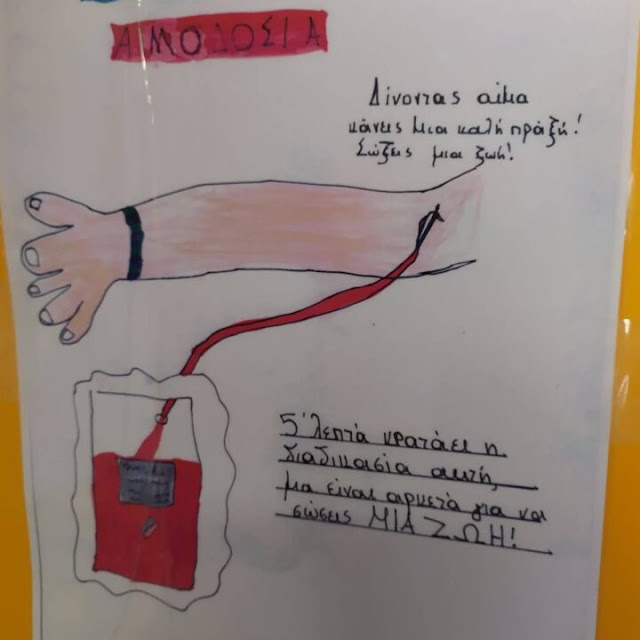 ΑΙΜΟΔΟΣΙΑ
Δίνοντας αίμα
κάνεις μια καλή πράξη!
Σώζεις μια ζωή!
5' λεπτά κρατάει η
διαδικασία αυτή
μα είναι αρκετά για να
σώσεις ΜΙΑ ΖΩΗ!